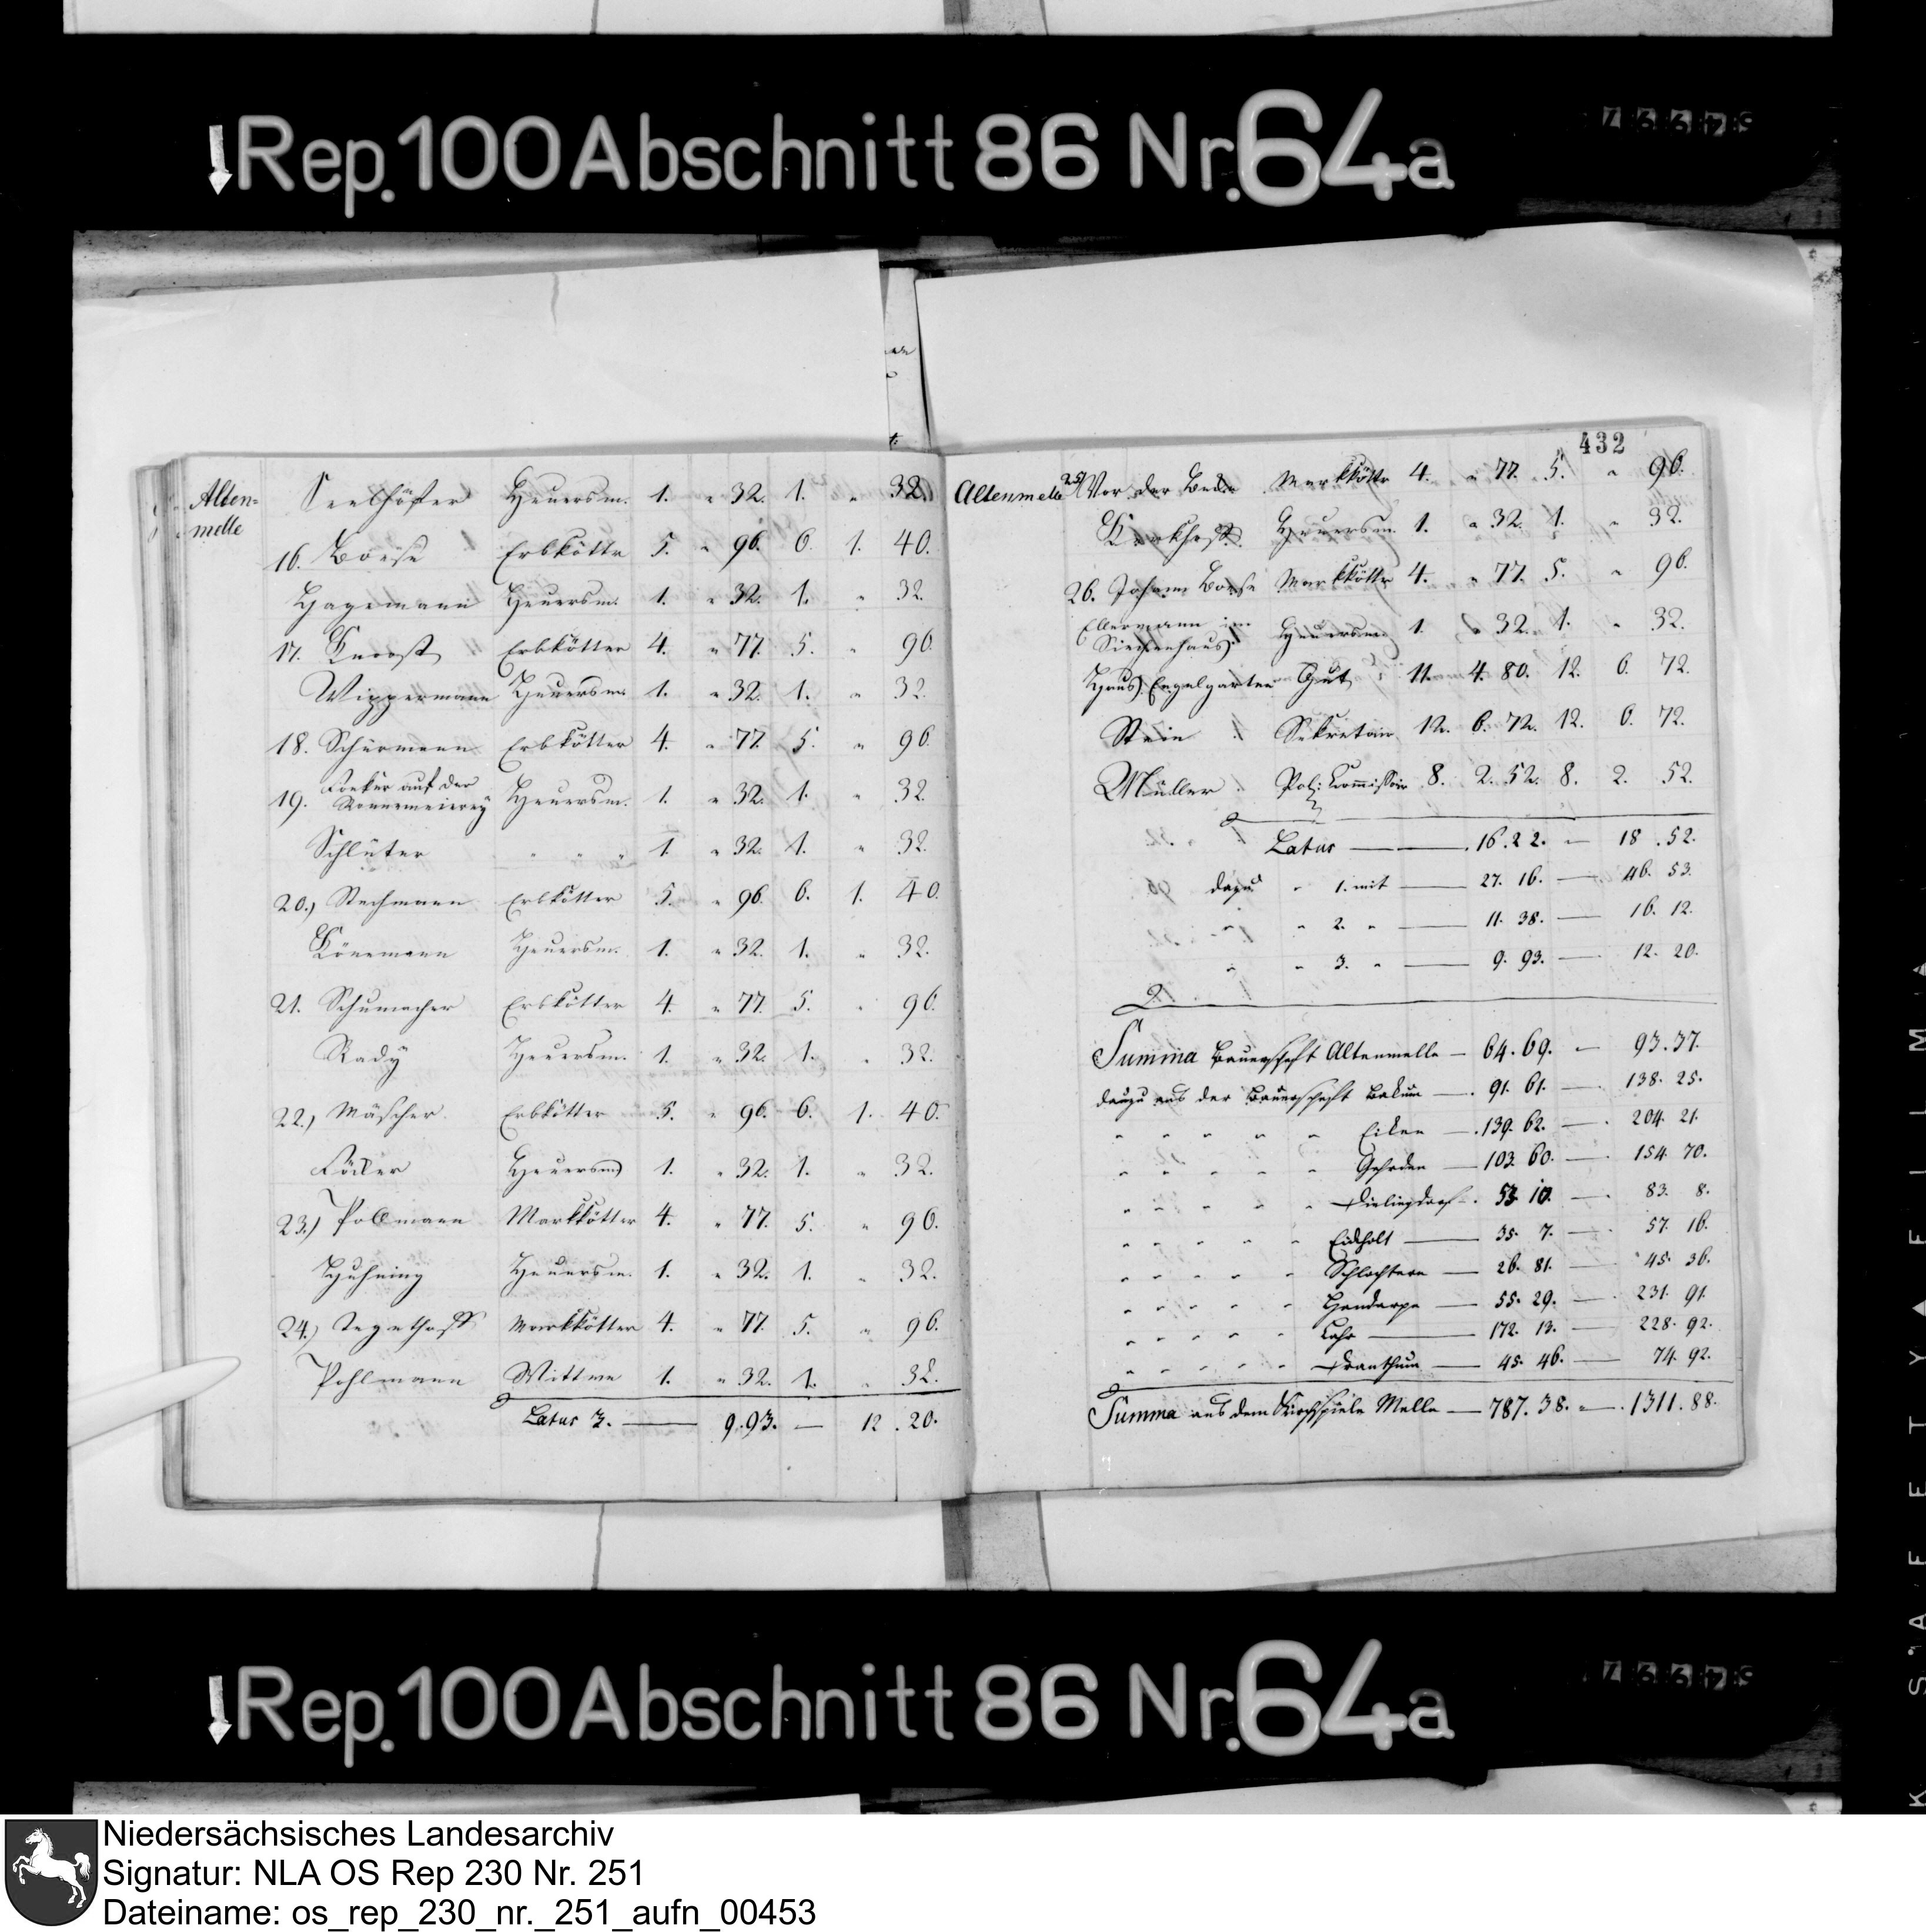 Rep. 100 Abschnitt 86 Nr. 64a
432
Alten-
melle
Seelhöfer Heuersm. 1. " 32. 1. " 32.
16. Borse Erbkötter 5. " 96. 6. 1. 40.
Hagemann Heuersm. 1. " 32. 1. " 32.
17. Knorst Erbkötter 4. " 77. 5. " 96.
Wippermann Heuersm. 1. " 32. 1. " 32.
18. Schürmann Erbkötter 4. " 77. 5. " 96.
19. auf der
Heuersm. 1. " 32. 1. " 32.
Schlüter " " " 1. " 32. 1. " 32.
20.) Erbkötter 5. " 96. 6. 1. 40.
Könemann Heuersm. 1. " 32. 1. " 32.
21. Schumacher Erbkötter 4. " 77. 5. " 96.
Rady Heuersm. 1. " 32. 1. " 32.
22.) Mäscher Erbkötter 5. " 96. 6. 1. 40.
Heuersm. 1. " 32. 1. " 32.
23.) Pollmann Markkötter 4. " 77. 5. " 96.
Huhning Heuersm. 1. " 32. 1. " 32.
24.) Tegethoff Markkötter 4. " 77. 5. " 96.
Pohlmann Wittwe 1. " 32. 1. " 32.
Latus 3. — 9.93. — 12.20.
Altenmelle
25. Vor der Markkötter 4. " 77. 5. " 96.
Heuersm. 1. " 32. 1. " 32.
26. Johann Borse Markkötter 4. " 77. 5. " 96.
Ellermann im
Siechenhaus Heuersm. 1. " 32. 1. " 32.
Haus Engelgarten Gut 11. 4. 80. 12. 6. 72.
Stein Sekretair 12. 6. 72. 12. 6. 72.
Müller Pol: Commissair 8. 2. 52. 8. 2. 52.
Latus — 16.22. — 18.52.
dazu " 1. mit — 27. 16. — 46. 53.
" " 2. " — 11. 38. — 16. 12.
" " 3. " — 9. 93. — 12. 20.
Summa Bauerschaft Altenmelle — 64.69. — 93.37.
dazu aus der Bauerschaft Bakum — 91. 61. — 138. 25.
" " " " " Eiken — 139. 62. — 204. 21.
" " " " " Gehrden — 103. 60. — 154. 70.
" " " " " Dielingdorf — 53. 10. — 83. 8.
" " " " " Eickholt — 35. 7. — 57. 16.
" " " " " Schlochtern — 26. 81. — 45. 36.
" " " " " Handarpe — 55. 29. — 231. 91.
" " " " " Laer — 172. 13. — 228. 92.
" " " " " Dranthum — 45. 46. — 74. 92.
Summa aus dem Kirchspiele Melle — 787.38. — 1311.88.
Rep. 100 Abschnitt 86 Nr. 64a
Niedersächsisches Landesarchiv
Signatur: NLA OS Rep 230 Nr. 251
Dateiname: os_rep_230_nr._251_aufn_00453